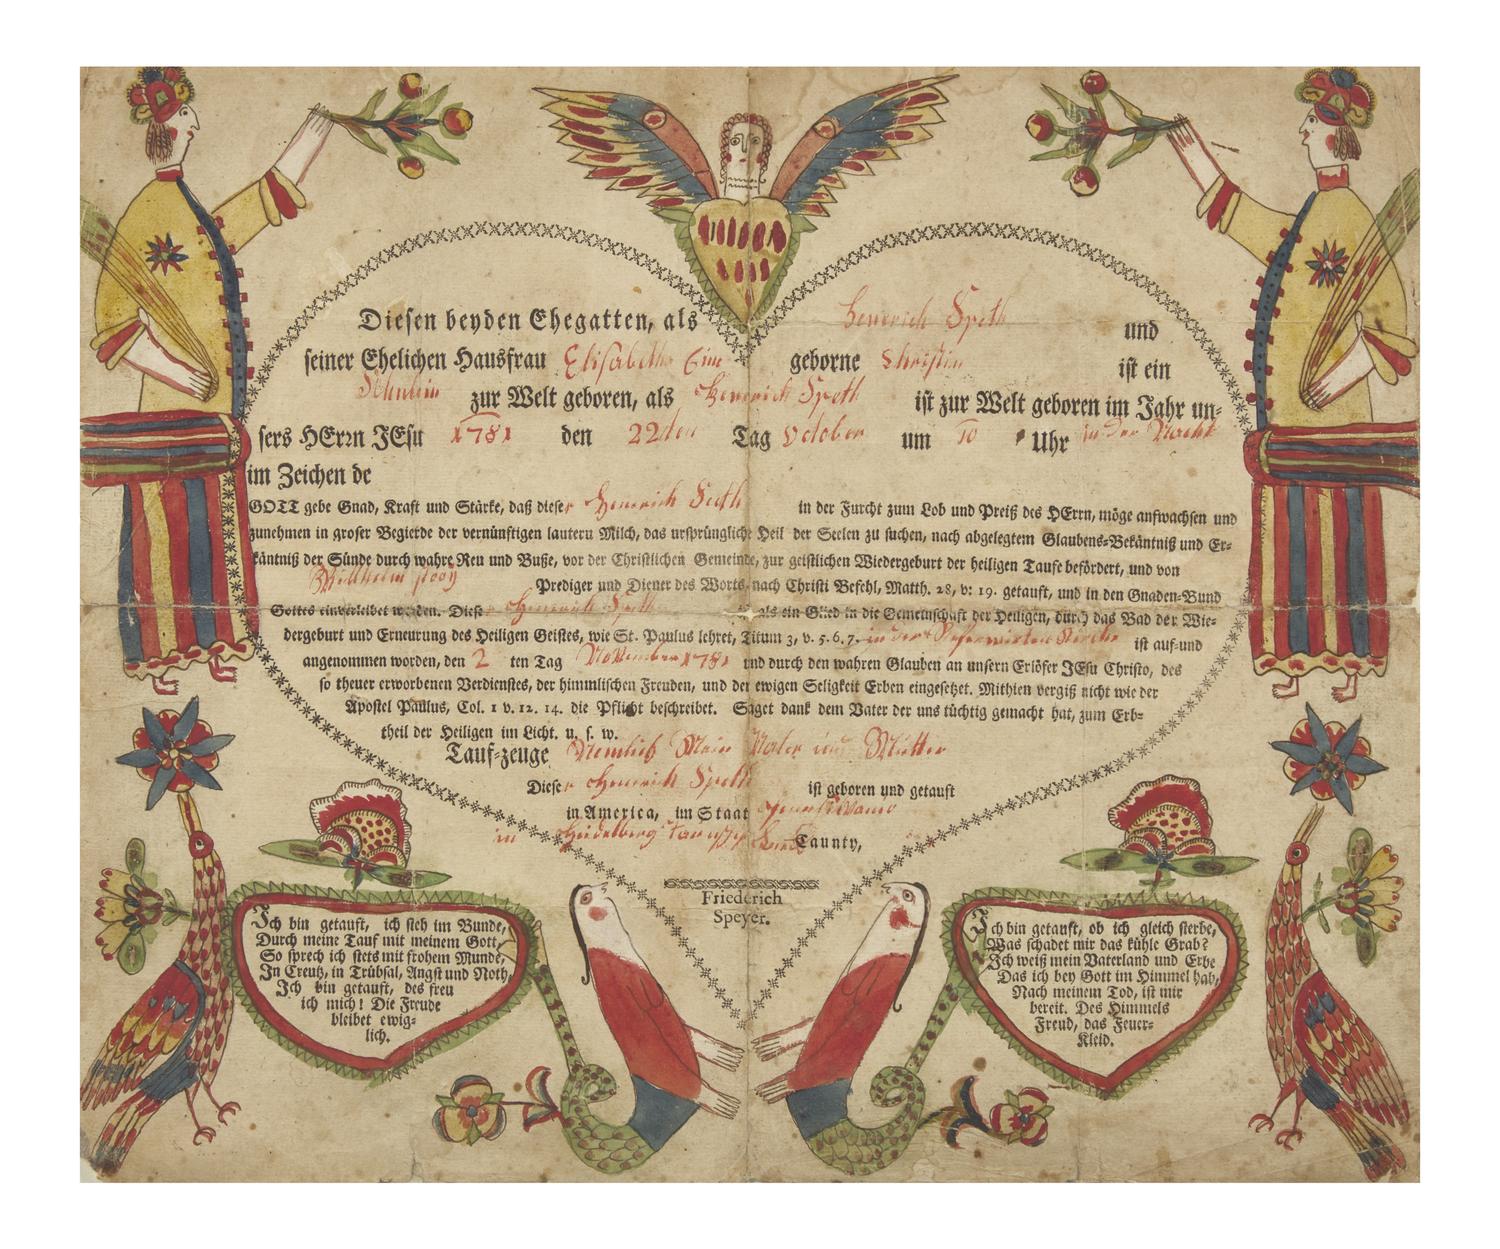 Diesen beyden Ehegatten, als Henrich Speth und
seiner Ehelichen Hausfrau Elisabeth Eine geborne Christin ist ein
zur Welt geboren, als Henrich Speth ist zur Welt geboren im Jahr un-
sers HErrn JEsu 1781 den 22den Tag October um 10 Uhr in der Nacht
im Zeichen de
GOTT gebe Gnad, Kraft und Stärke, daß dieser Henrich Speth in der Furcht zum Lob und Preiß des HErrn, möge aufwachsen und
zunehmen in groser Begierde der vernünftigen lautern Milch, das ursprüngliche Heil der Seelen zu suchen, nach abgelegtem Glaubens-Bekäntniß und Er-
käntniß der Sünde durch wahre Reu und Buße, vor der Christlichen Gemeinde, zur geistlichen Wiedergeburt der heiligen Taufe befördert, und von
Prediger und Diener des Worts, nach Christi Befehl, Matth. 28, v: 19. getauft, und in den Gnaden-Bund
Gottes einverleibet worden. Dieser Henrich Speth als ein Glied in die Gemeinschaft der Heiligen, durch das Bad der Wie-
dergeburt und Erneurung des Heiligen Geistes, wie St. Paulus lehret, Titum 3, v. 5. 6. 7. in der Reformirten Kirche ist auf-und
angenommen worden, den 2 ten Tag November 1781 und durch den wahren Glauben an unsern Erlöser JEsu Christo, des
so theuer erworbenen Verdienstes, der himmlischen Freuden, und der ewigen Seligkeit Erben eingesetzet. Mithien vergiß nicht wie der
Apostel Paulus, Col. 1 v. 12. 14. die Pflicht beschreibet. Saget dank dem Vater der uns tüchtig gemacht hat, zum Erb-
theil der Heiligen im Licht. u. s. w.
Tauf-zeuge Nemlich Mein Vater und Mutter
Dieser Henrich Speth ist geboren und getauft
in America, im Staat
in Heidelberg County,
Friederich
Speyer.
Ich bin getauft, ich steh im Bunde,
Durch meine Tauf mit meinem Gott,
So sprech ich stets mit frohem Munde,
In Creutz, in Trübsal, Angst und Noth,
Ich bin getauft, des freu
ich mich! Die Freude
bleibet ewig-
lich.
Ich bin getauft, ob ich gleich sterbe,
Was schadet mir das kühle Grab?
Ich weiß mein Vaterland und Erbe
Das ich bey Gott im Himmel hab,
Nach meinem Tod, ist mir
bereit. Des Himmels
Freud, das Feuer-
Kleid.